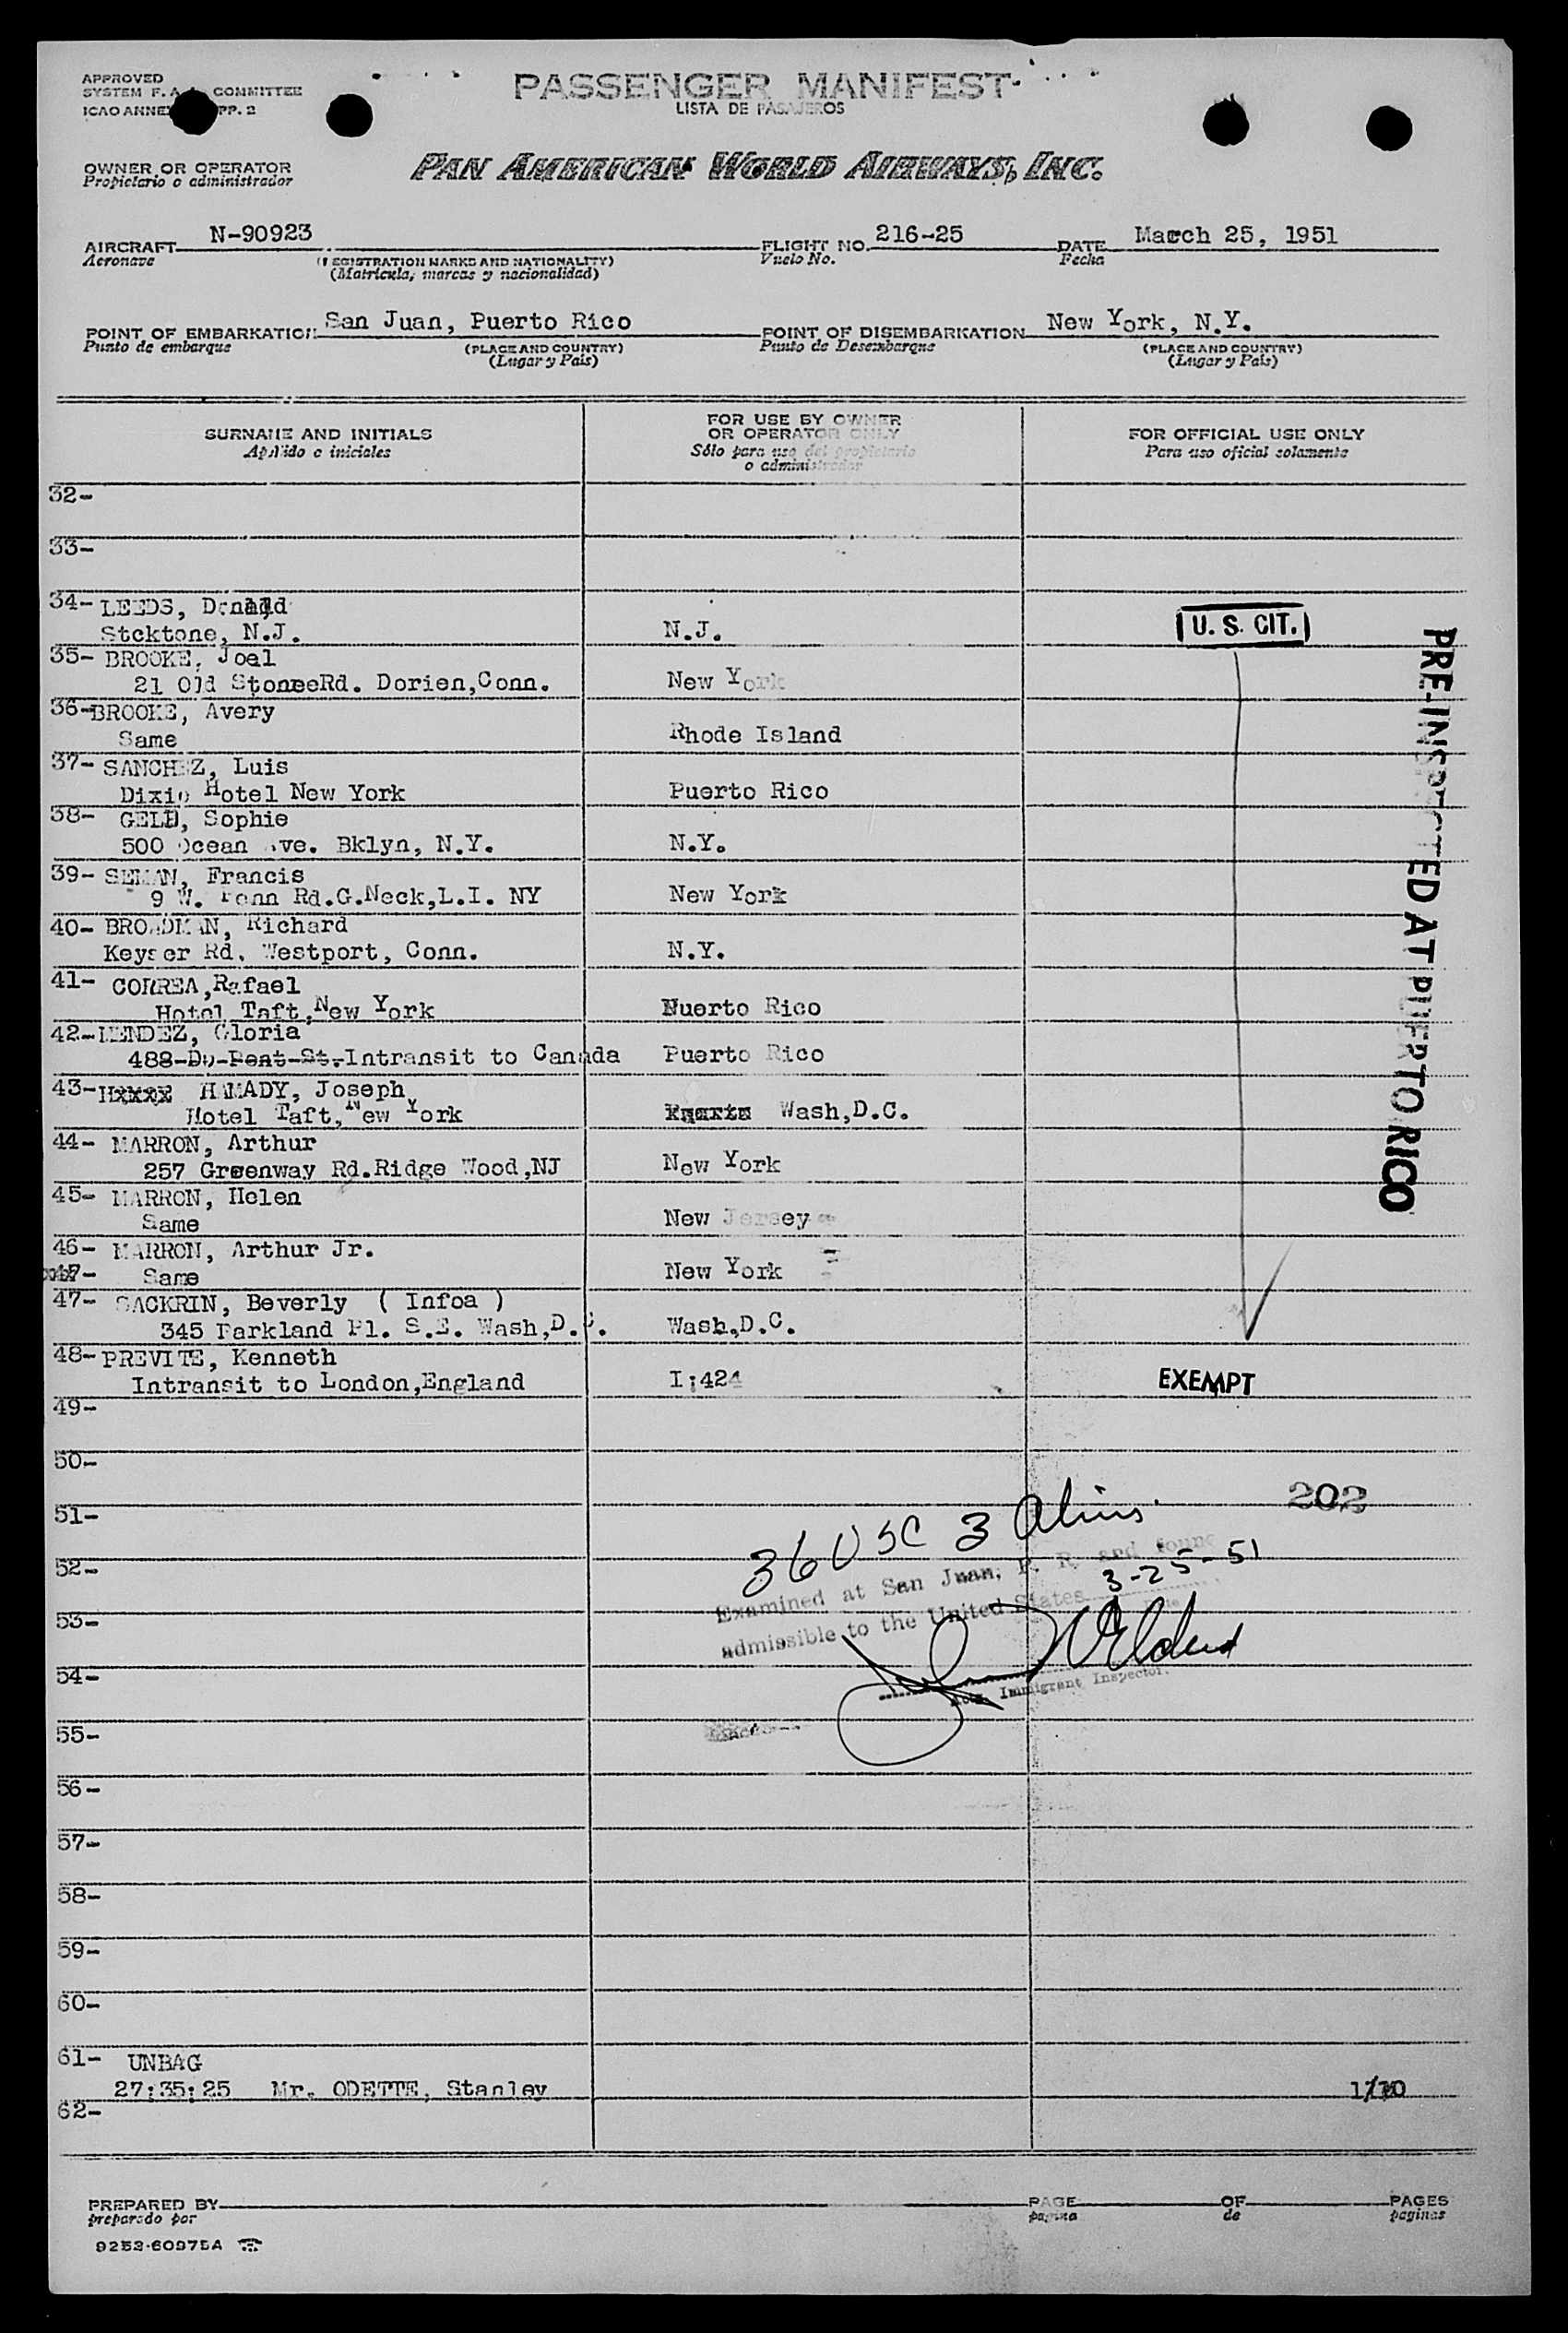 APPROVED
SYSTEM F. A. COMMITTEE
ICAO ANNEX PP. 2
PASSENGER MANIFEST
LISTA DE PASAJEROS
OWNER OR OPERATOR
Propietario o administrador
PAN AMERICAN WORLD AIRWAYS, INC.
AIRCRAFT N-90923 FLIGHT NO. 216-25 DATE March 25, 1951
Aeronave (REGISTRATION MARKS AND NATIONALITY) Vuelo No. Fecha
(Matricula, marcas y nacionalidad)
POINT OF EMBARKATION San Juan, Puerto Rico POINT OF DISEMBARKATION New York, N.Y.
Punto de embarque (PLACE AND COUNTRY) Punto de Desembarque (PLACE AND COUNTRY)
(Lugar y Pais) (Lugar y Pais)
SURNAME AND INITIALS FOR USE BY OWNER OR OPERATOR ONLY FOR OFFICIAL USE ONLY
Apellido e iniciales Sólo para uso del propietario o administrador Para uso oficial solamente
32-
33-
34- LEEDS, Donald
Stcktone, N.J. N.J. U. S. CIT.
35- BROOKE, Joel
21 Old Stone Rd. Dorien,Conn. New York
36-BROOKE, Avery
Same Rhode Island
37- SANCHEZ, Luis
Dixie Hotel New York Puerto Rico
38- GELD, Sophie
500 Ocean Ave. Bklyn, N.Y. N.Y.
39- SEMAN, Francis
9 W. Rd.G.Neck,L.I. NY New York
40- BROADMAN, Richard
Keyser Rd. Westport, Conn. N.Y.
41- CORREA,Rafael
Hotel Taft,New York Nuerto Rico
42-MENDEZ, Gloria
488-Du-Pont-St.Intransit to Canada Puerto Rico
43-Hxxxx HAMADY, Joseph
Hotel Taft, New York Wash,D.C.
44- MARRON, Arthur
257 Greenway Rd.Ridge Wood,NJ New York
45- MARRON, Helen
Same New Jersey
46- MARRON, Arthur Jr.
47- Same New York
47- SACKRIN, Beverly ( Infoa )
345 Parkland Pl. S.E. Wash,D.C. Wash,D.C.
48-PREVITE, Kenneth
Intransit to London,England I:424 EXEMPT
PRE-INSPECTED AT PUERTO RICO
49-
50-
51- 202
36 USC 3 Aliens
52-
Examined at San Juan, P. R. and found 3-25-51
53-
admissible to the United States
54-
Immigrant Inspector.
55-
56-
57-
58-
59-
60-
61- UNBAG
27:35:25 Mr. ODETTE, Stanley
62-
PREPARED BY PAGE OF PAGES
preparado por pagina de paginas
9253-60975A